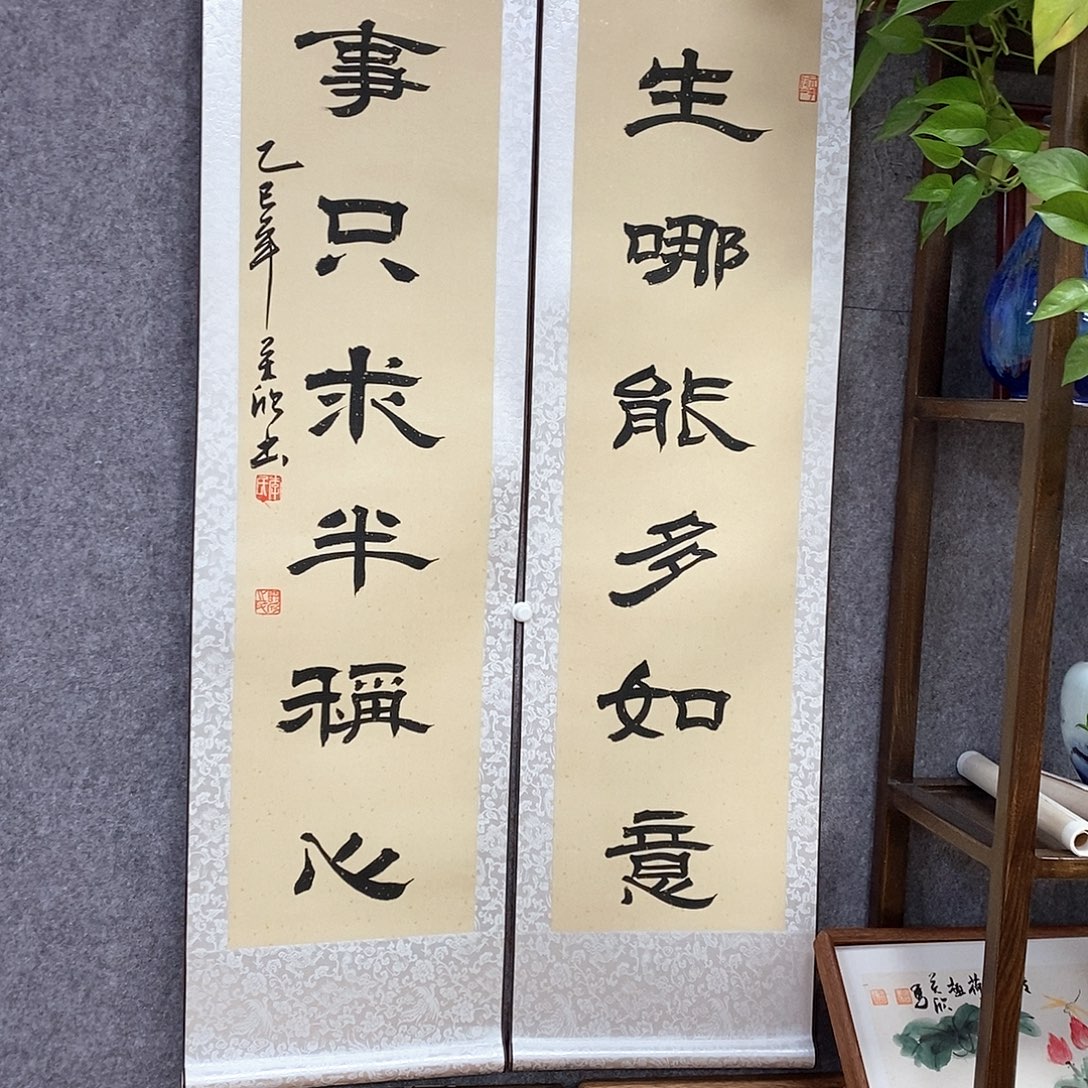 生哪能多如意
事只求半稱心
乙巳年 英欣書